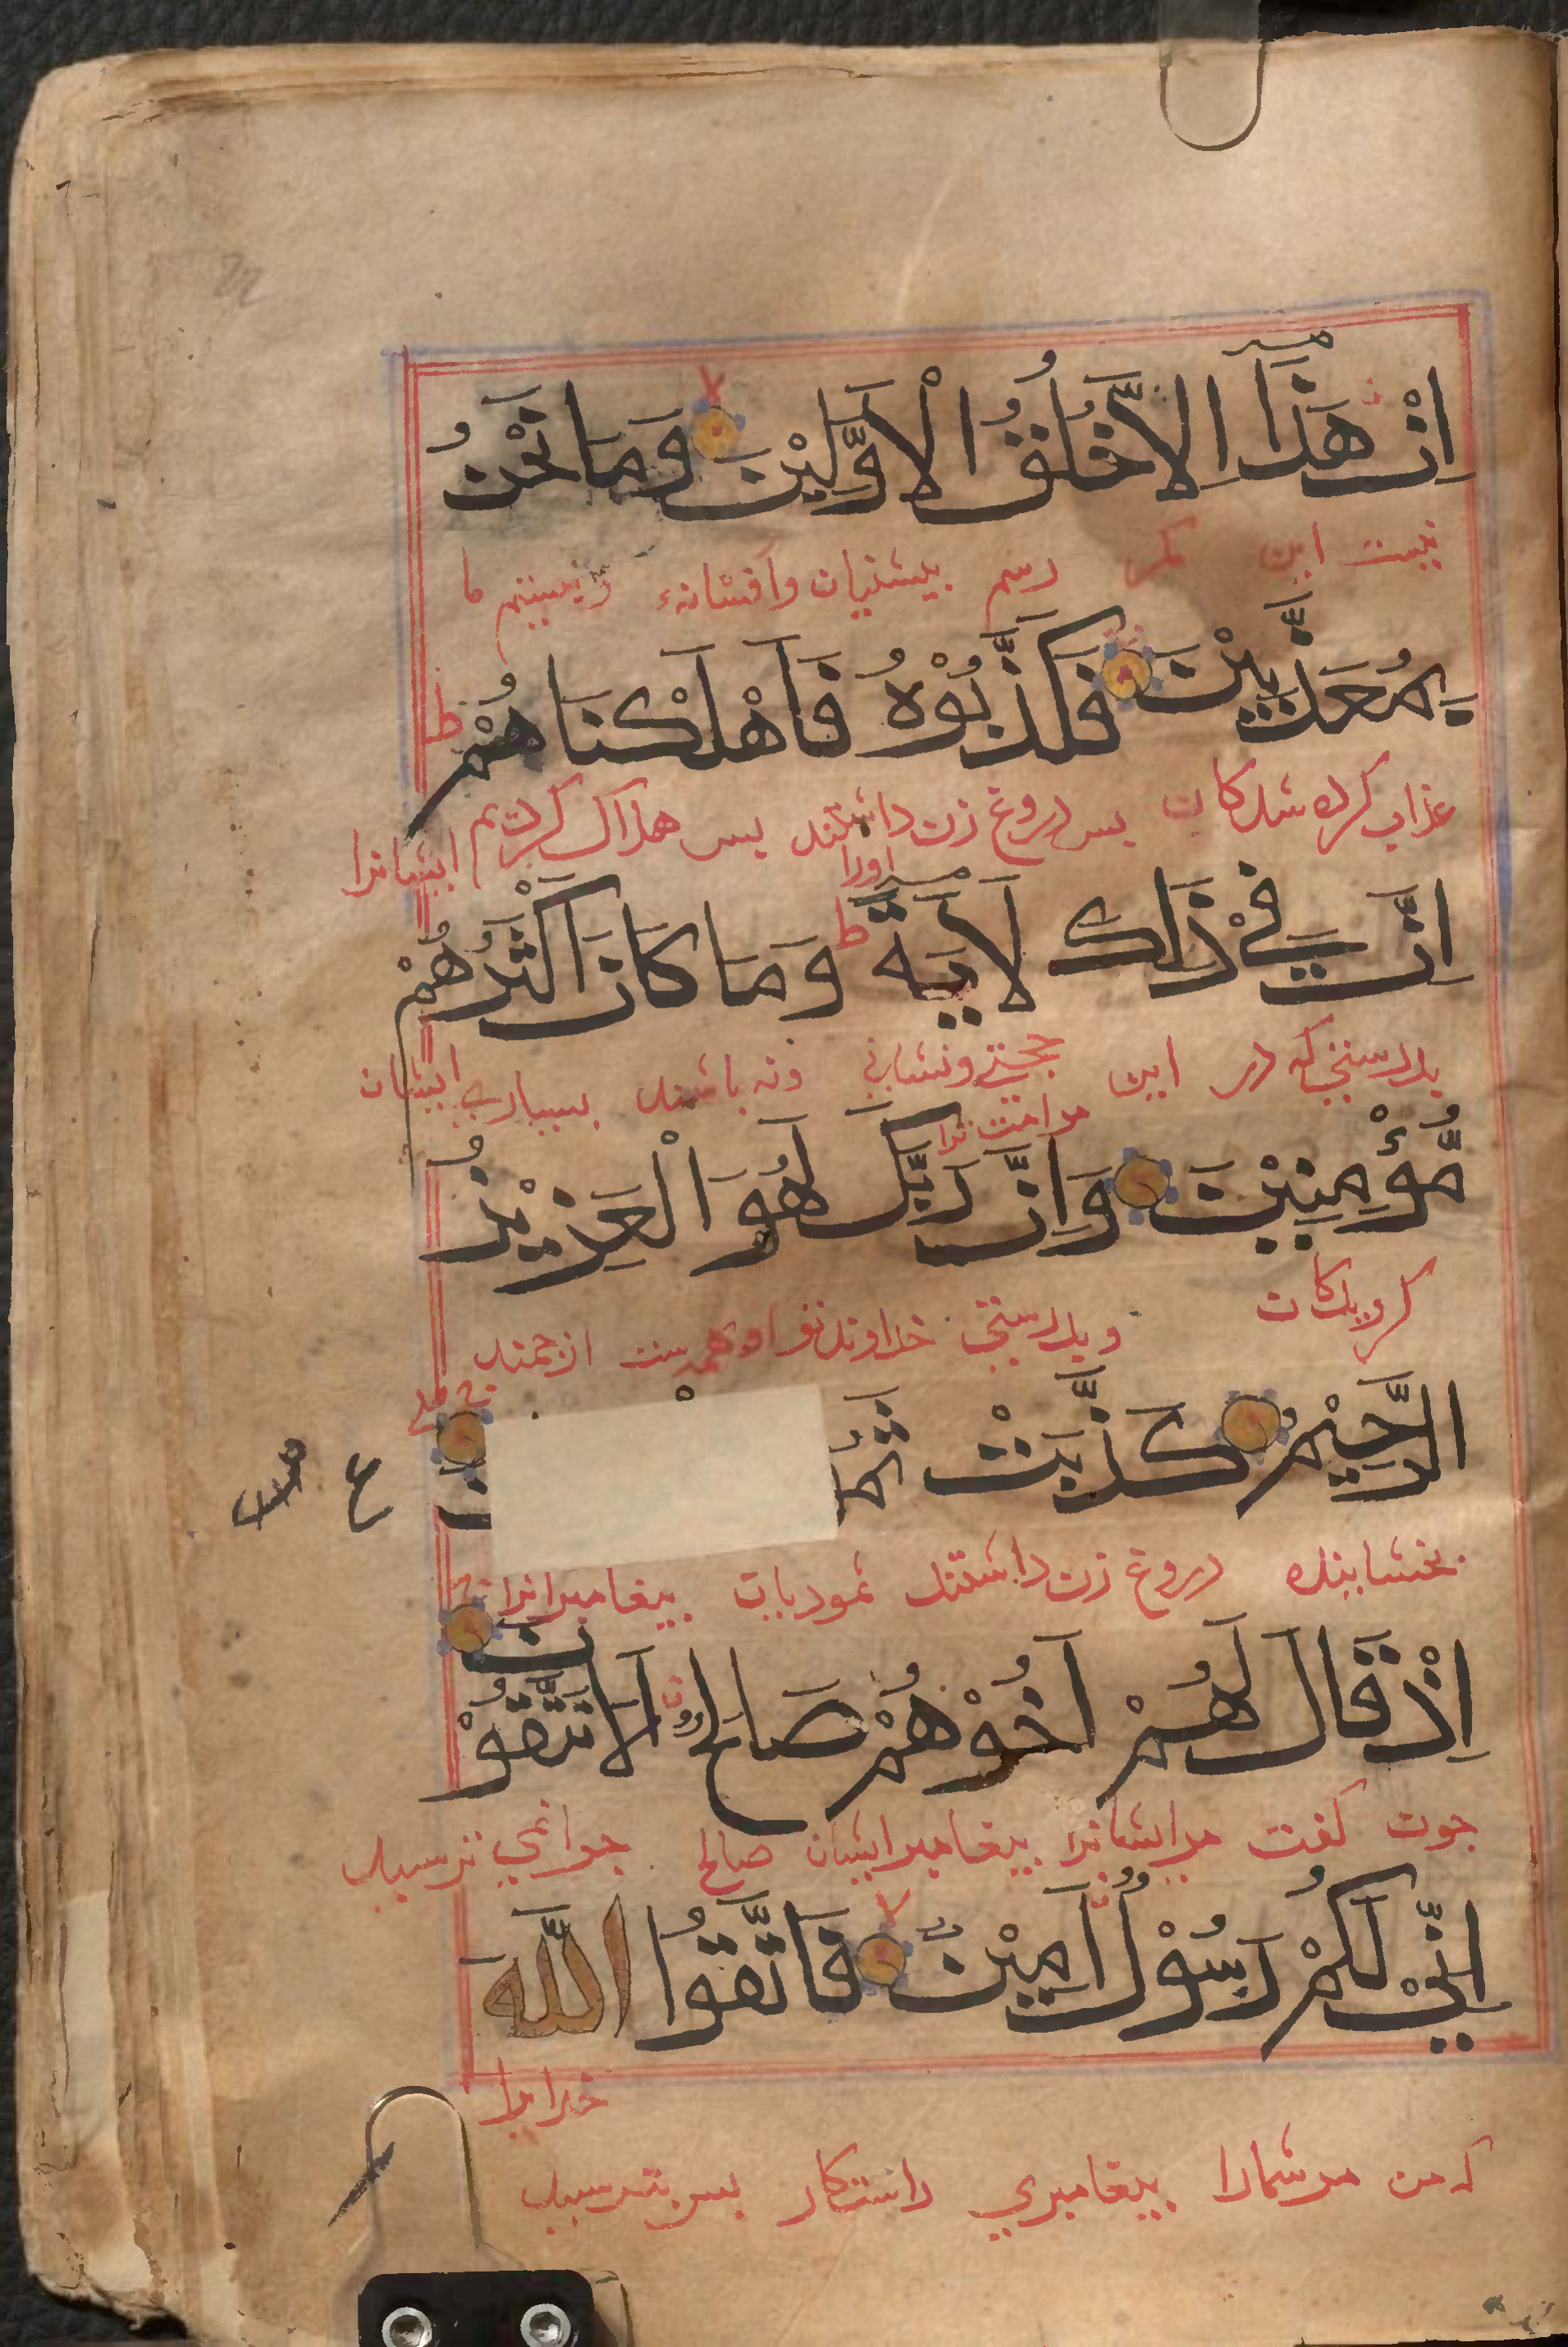 اِنْ هَذَا اِلَّا خُلُقُ الْاَوَّلِيْنَ وَمَا نَحْنُ
نیست این مکر رسم پیشینیان وافسانه ونیستیم ما
بِمُعَذَّبِيْنَ فَكَذَّبُوْهُ فَاَهْلَكْنَاهُمْ ط
عذاب کرده شدکان پس دروغ زن داشتند پس هلاک کردیم ایشانرا
اورا
اِنَّ فِيْ ذَلِكَ لَاٰيَةً ط وَمَا كَانَ اَكْثَرُهُمْ
بدرستی که در این حجتی ونشانی ونه باشند بسیاری ایشان
مرامت ترا
مُّؤْمِنِيْنَ وَاِنَّ رَبَّكَ لَهُوَ الْعَزِيْزُ
کرویدکان وبدرستی خداوندتو اوهمه ست ارجمند
الرَّحِيْمُ كَذَّبَتْ ثَمُ
ع
بخشاینده دروغ زن داشتند ثمودیان پیغامبرانرا
اِذْ قَالَ لَهُمْ اَخُوْهُمْ صَالِحٌ اَلَا تَتَّقُوْنَ
چون کفت مرایشانرا پیغامبرایشان صالح چرانمی ترسید
اِنِّيْ لَكُمْ رَسُوْلٌ اَمِيْنٌ لا فَاتَّقُوا اللّٰهَ
خدایرا
که من مرشمارا پیغامبری راستکار پس بترسید